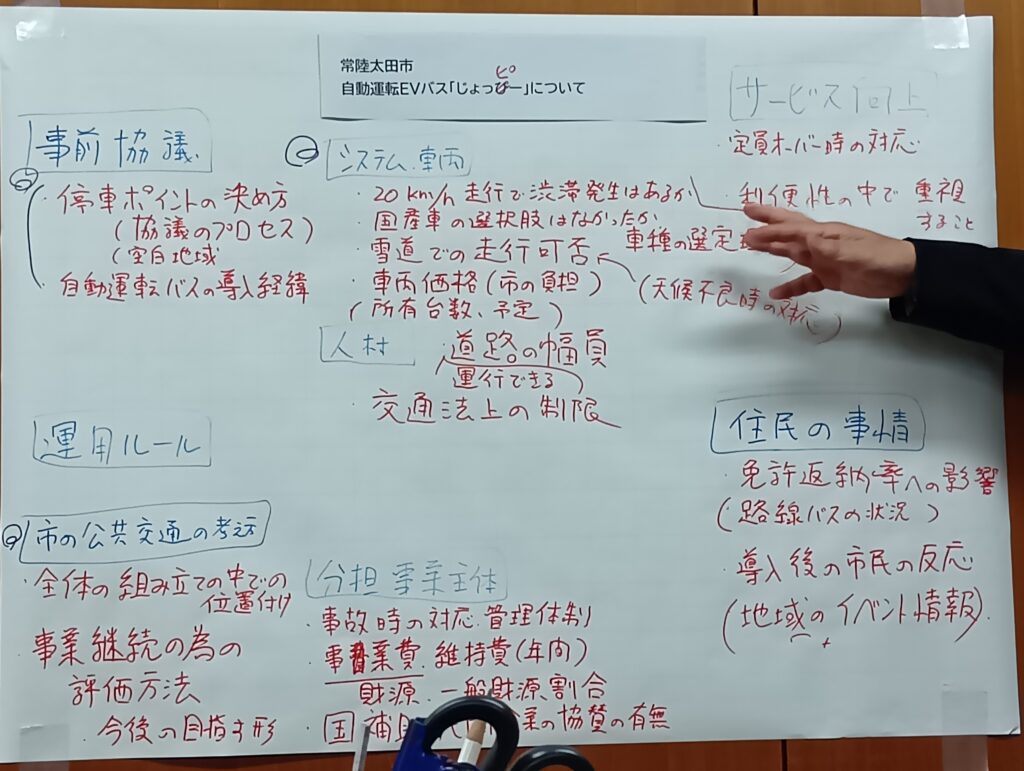 常陸太田市
自動運転EVバス「じょっぴー」について
ピ
事前協議
・停車ポイントの決め方
(協議のプロセス)
(空白地域
・自動運転バスの導入経緯
システム.車両
・20km/h走行で渋滞発生はあるか
・国産車の選択肢はなかったか
・雪道での走行可否
車種の選定
・車両価格(市の負担)
(天候不良時の対応)
(所有台数、予定)
人材
・道路の幅員
(運行できる)
・交通法上の制限
サービス向上
・定員オーバー時の対応
・利便性の中で重視
すること
運用ルール
住民の事情
・免許返納率への影響
(路線バスの状況)
・導入後の市民の反応
(地域のイベント情報)
市の公共交通の考え方
・全体の組み立ての中での
位置付け
・事業継続の為の
評価方法
・今後の目指す形
分担事業主体
・事故時の対応.管理体制
・事業費.維持費(年内)
財源.一般財源割合
・国補助
業の協賛の有無